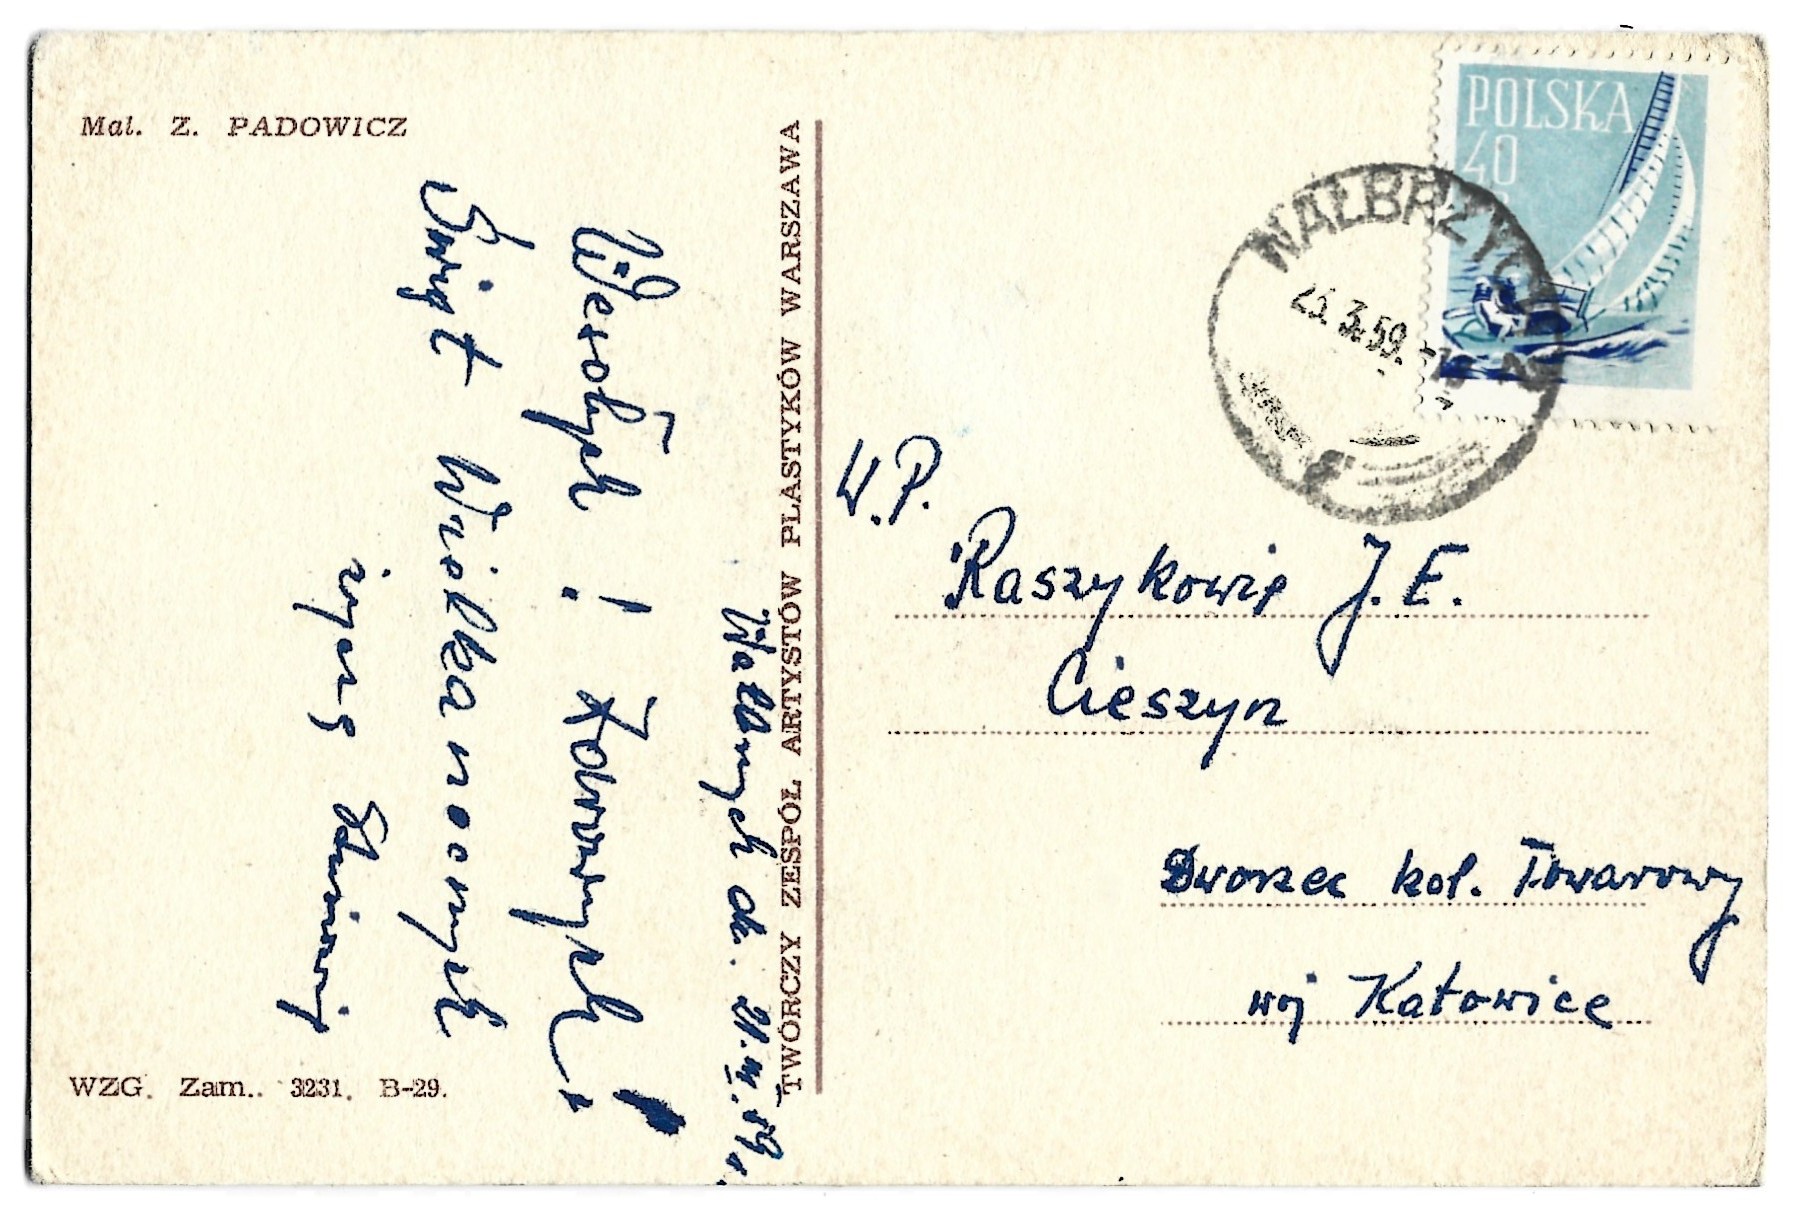 Mal. Z. PADOWICZ
Wałbrzych dn. 21.III.59 r.
Wesołych i Zdrowych!
Świąt Wielkanocnych
życzą
WZG. Zam.. 3231. B-29.
TWÓRCZY ZESPÓŁ ARTYSTÓW PLASTYKÓW WARSZAWA
POLSKA
40
WAŁBRZYCH
3.59
W.P.
Raszykowie J. E.
Cieszyn
Dworzec kol. Towarowy
woj Katowice